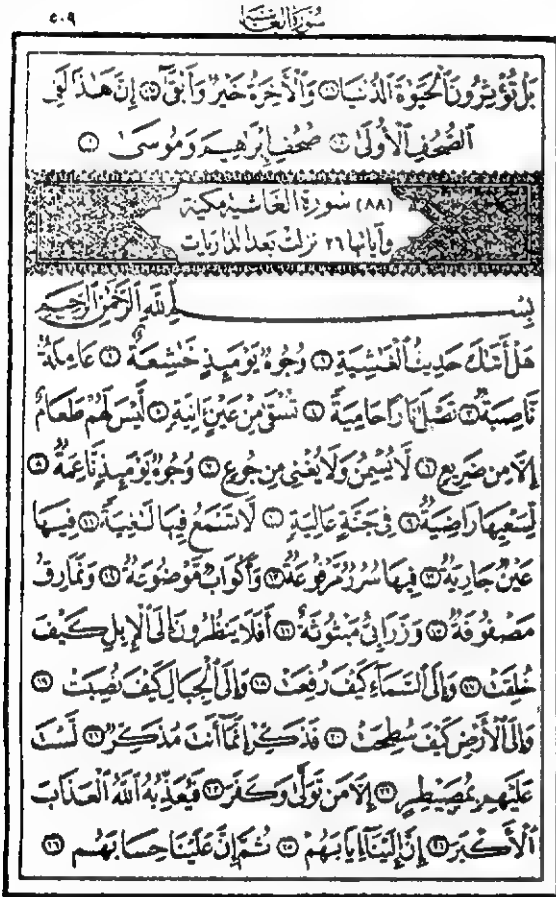 ٥٠٩ سورة الغاشية
بَلْ تُؤْثِرُونَ ٱلْحَيَوٰةَ ٱلدُّنْيَا ١٦ وَٱلْأَخِرَةُ خَيْرٌ وَأَبْقَىٰٓ ١٧ إِنَّ هَٰذَا لَفِى
ٱلصُّحُفِ ٱلْأُولَىٰ ١٨ صُحُفِ إِبْرَٰهِيمَ وَمُوسَىٰ ١٩
(٨٨) سورة الغاشية مكية
وآياتها ٢٦ نزلت بعد الذاريات
بِسْمِ ٱللَّهِ ٱلرَّحْمَٰنِ ٱلرَّحِيمِ
هَلْ أَتَىٰكَ حَدِيثُ ٱلْغَٰشِيَةِ ١ وُجُوهٌ يَوْمَئِذٍ خَٰشِعَةٌ ٢ عَامِلَةٌ
نَّاصِبَةٌ ٣ تَصْلَىٰ نَارًا حَامِيَةً ٤ تُسْقَىٰ مِنْ عَيْنٍ ءَانِيَةٍ ٥ لَّيْسَ لَهُمْ طَعَامٌ
إِلَّا مِن ضَرِيعٍ ٦ لَّا يُسْمِنُ وَلَا يُغْنِى مِن جُوعٍ ٧ وُجُوهٌ يَوْمَئِذٍ نَّاعِمَةٌ ٨
لِّسَعْيِهَا رَاضِيَةٌ ٩ فِى جَنَّةٍ عَالِيَةٍ ١٠ لَّا تَسْمَعُ فِيهَا لَٰغِيَةً ١١ فِيهَا
عَيْنٌ جَارِيَةٌ ١٢ فِيهَا سُرُرٌ مَّرْفُوعَةٌ ١٣ وَأَكْوَابٌ مَّوْضُوعَةٌ ١٤ وَنَمَارِقُ
مَصْفُوفَةٌ ١٥ وَزَرَابِىُّ مَبْثُوثَةٌ ١٦ أَفَلَا يَنظُرُونَ إِلَى ٱلْإِبِلِ كَيْفَ
خُلِقَتْ ١٧ وَإِلَى ٱلسَّمَآءِ كَيْفَ رُفِعَتْ ١٨ وَإِلَى ٱلْجِبَالِ كَيْفَ نُصِبَتْ ١٩
وَإِلَى ٱلْأَرْضِ كَيْفَ سُطِحَتْ ٢٠ فَذَكِّرْ إِنَّمَآ أَنتَ مُذَكِّرٌ ٢١ لَّسْتَ
عَلَيْهِم بِمُصَيْطِرٍ ٢٢ إِلَّا مَن تَوَلَّىٰ وَكَفَرَ ٢٣ فَيُعَذِّبُهُ ٱللَّهُ ٱلْعَذَابَ
ٱلْأَكْبَرَ ٢٤ إِنَّ إِلَيْنَآ إِيَابَهُمْ ٢٥ ثُمَّ إِنَّ عَلَيْنَا حِسَابَهُم ٢٦